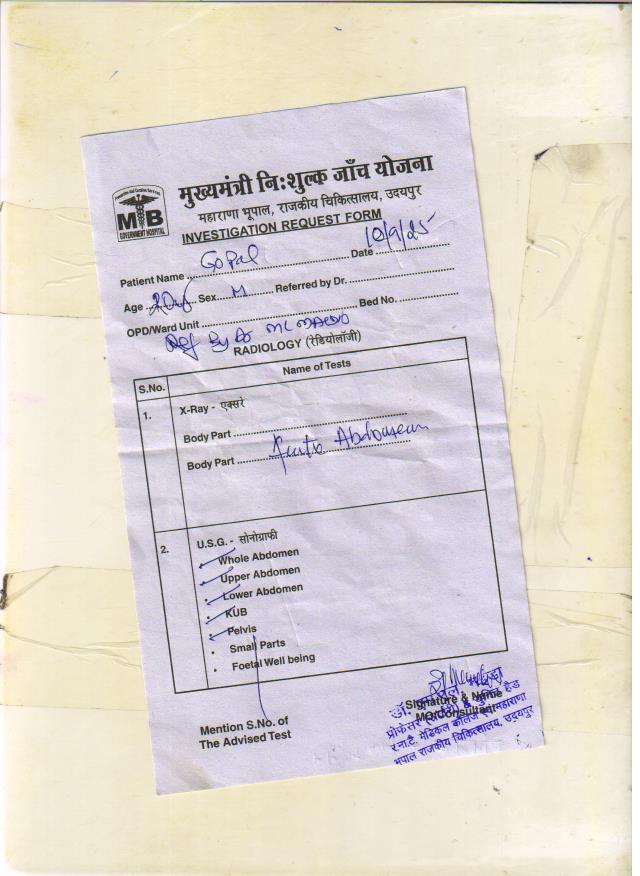 मुख्यमंत्री निःशुल्क जाँच योजना
महाराणा भूपाल, राजकीय चिकित्सालय, उदयपुर
MB
GOVERNMENT HOSPITAL
INVESTIGATION REQUEST FORM
Patient Name Gopal Date 10/9/25
Age 20y Sex M Referred by Dr.
OPD/Ward Unit Bed No.
Ref By Dr ML
RADIOLOGY (रेडियोलॉजी)
S.No. Name of Tests
1. X-Ray - एक्सरे
Body Part
Body Part Abdomen
2. U.S.G. - सोनोग्राफी
Whole Abdomen
Upper Abdomen
Lower Abdomen
KUB
Pelvis
Small Parts
Foetal Well being
Mention S.No. of
The Advised Test
Signature & Name
MO/Consultant
डॉ.
प्रोफेसर हैड
र.ना.टै. मेडिकल कॉलेज एवं महाराणा
भूपाल राजकीय चिकित्सालय, उदयपुर